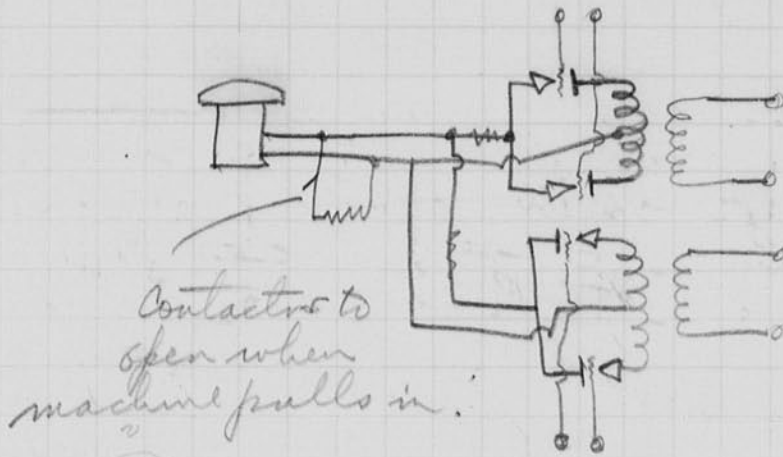 Contactor to
open when
machine pulls in.